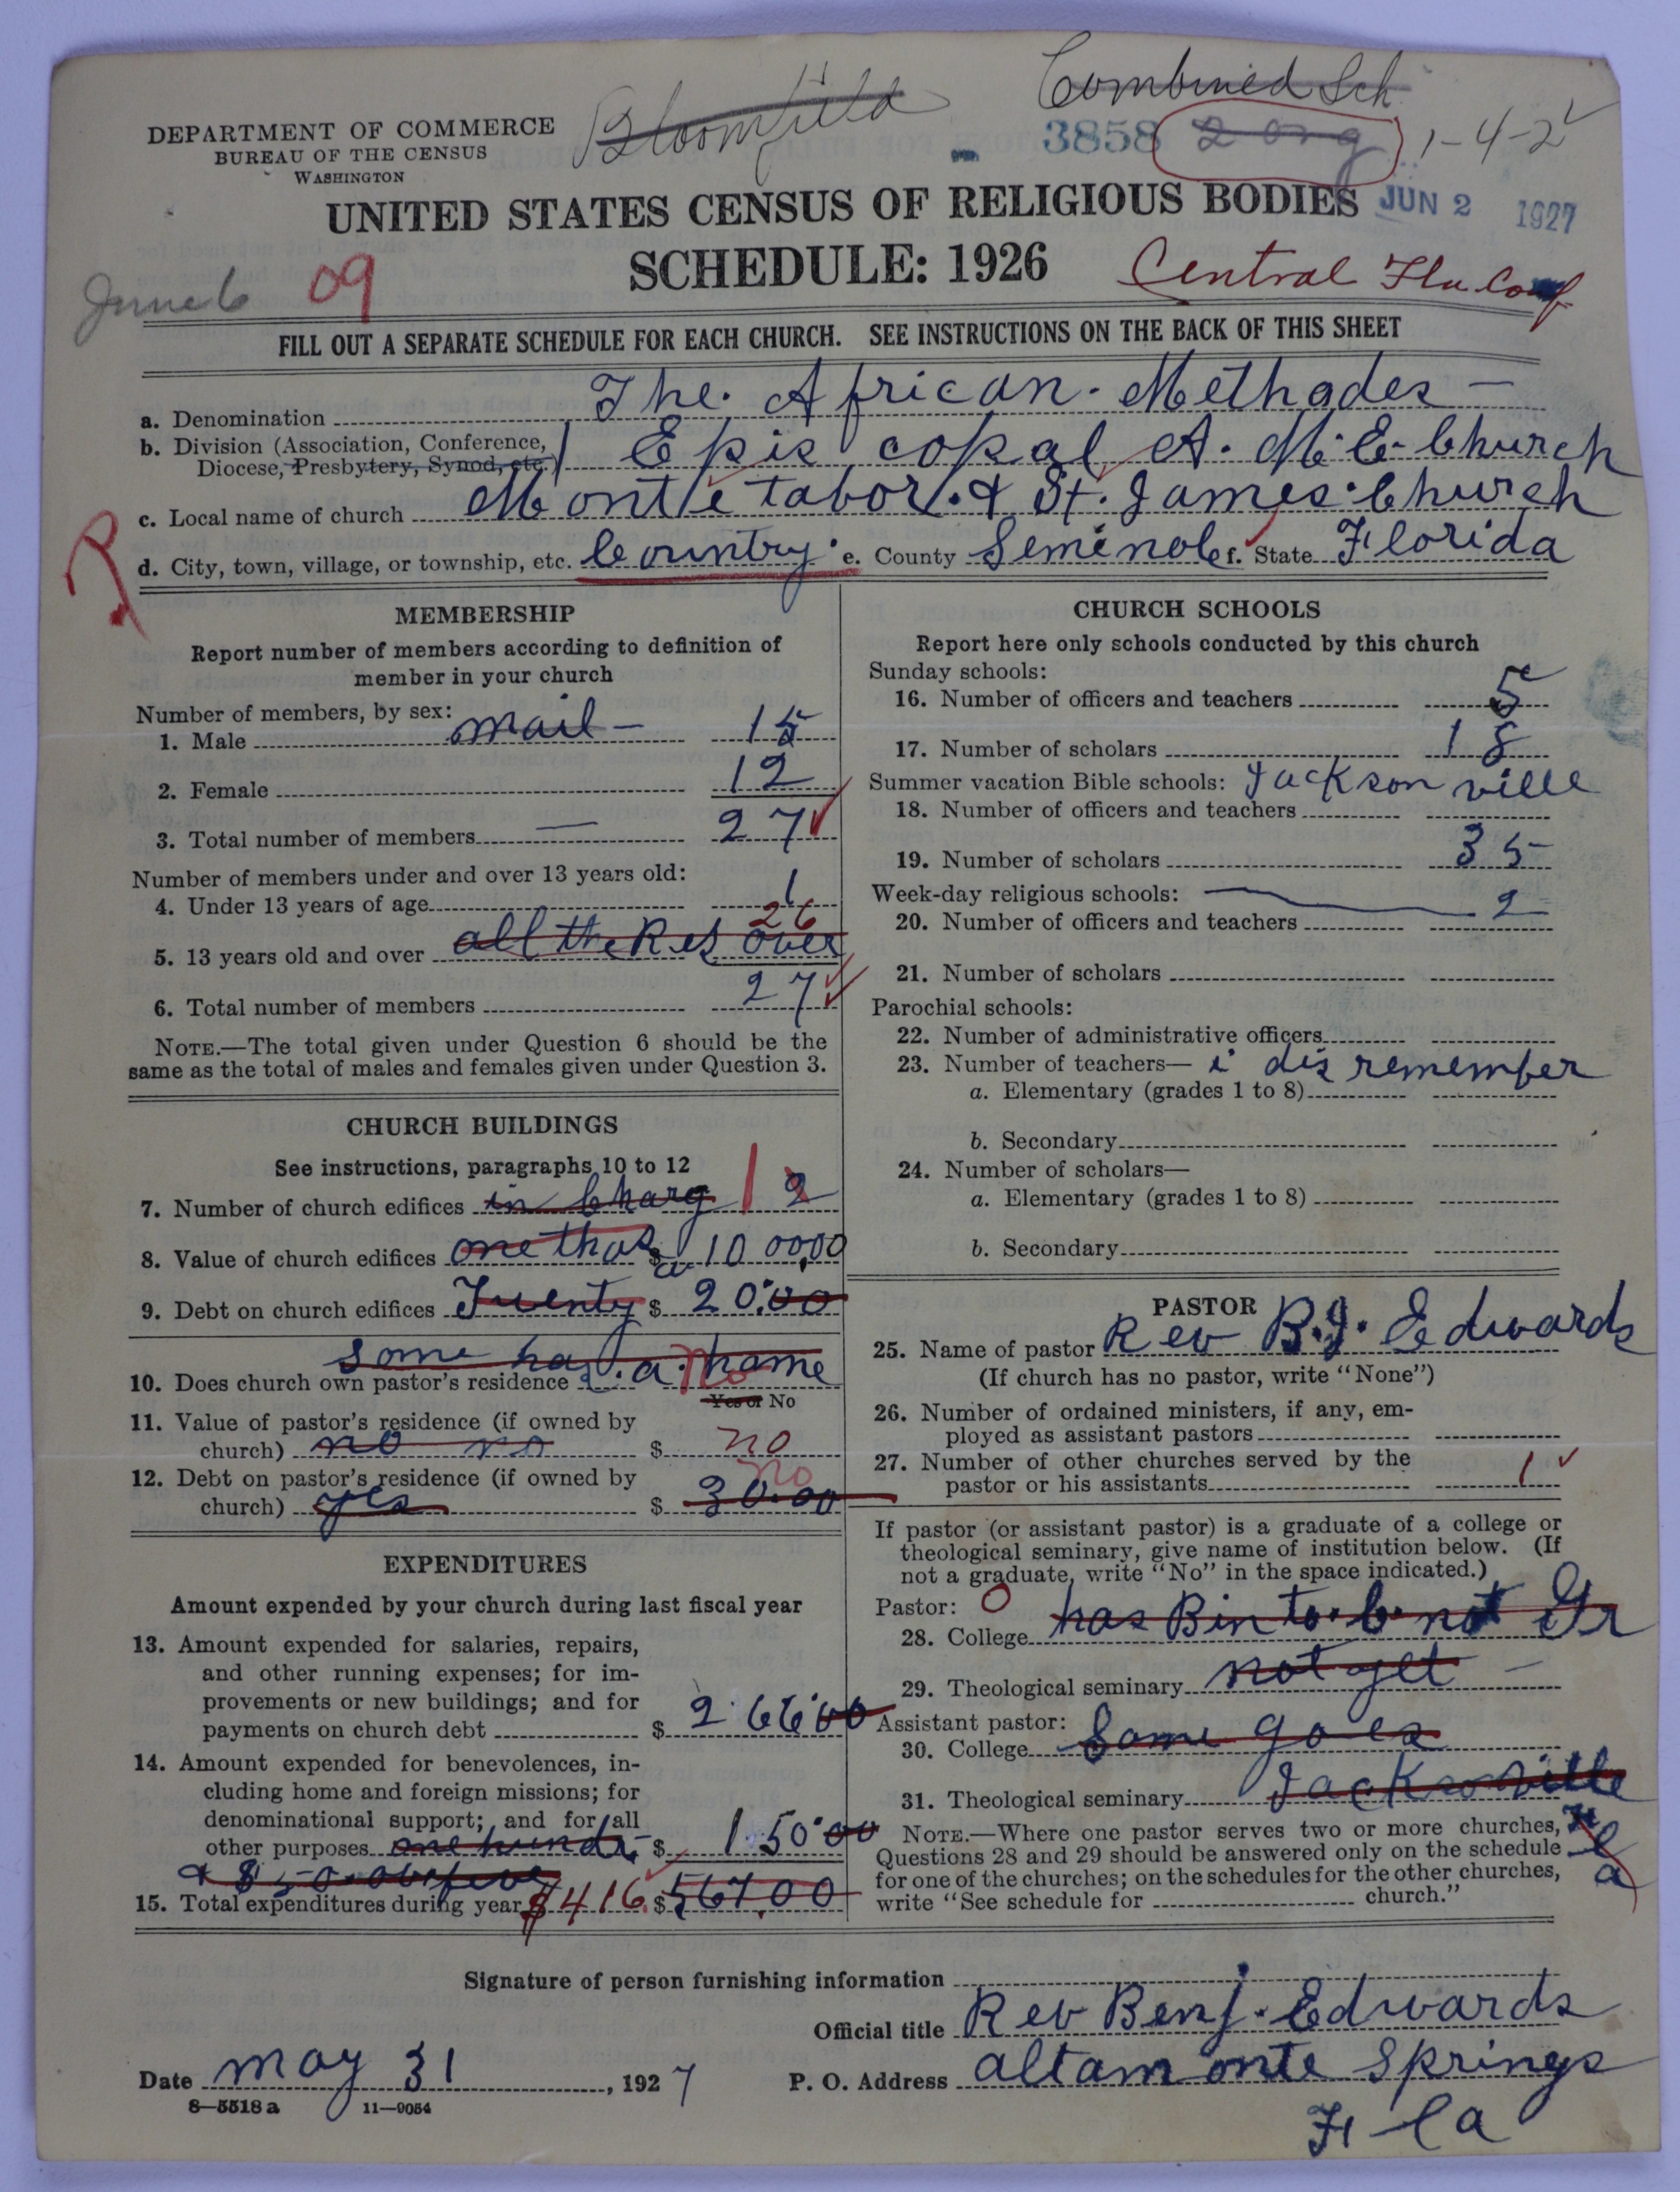 Combined Sch
Bloomfield
DEPARTMENT OF COMMERCE
BUREAU OF THE CENSUS
WASHINGTON
3858 2 org 1-4-2
UNITED STATES CENSUS OF RELIGIOUS BODIES
JUN 2 1927
SCHEDULE: 1926
June 6 09
Central Fla Conf
FILL OUT A SEPARATE SCHEDULE FOR EACH CHURCH. SEE INSTRUCTIONS ON THE BACK OF THIS SHEET
a. Denomination The. African. Methodes —
b. Division (Association, Conference, Diocese, Presbytery, Synod, etc.) Epis copal A. M. E. Church
c. Local name of church Mont e tabor. & St. James. Church
d. City, town, village, or township, etc. Country. e. County Seminole f. State Florida
MEMBERSHIP
Report number of members according to definition of
member in your church
Number of members, by sex:
1. Male mail — 15
2. Female 12
3. Total number of members — 27
Number of members under and over 13 years old:
4. Under 13 years of age 1
26
5. 13 years old and over all the Res over
6. Total number of members 27
NOTE.—The total given under Question 6 should be the
same as the total of males and females given under Question 3.
CHURCH BUILDINGS
See instructions, paragraphs 10 to 12
7. Number of church edifices in Charg 1 2
8. Value of church edifices one thos $ 10 00.00
9. Debt on church edifices Twenty $ 20.00
some has a. home
10. Does church own pastor's residence No
Yes or No
11. Value of pastor's residence (if owned by
church) no no $ no
12. Debt on pastor's residence (if owned by
no
church) yes $ 30.00
EXPENDITURES
Amount expended by your church during last fiscal year
13. Amount expended for salaries, repairs,
and other running expenses; for im-
provements or new buildings; and for
payments on church debt $ 266.00
14. Amount expended for benevolences, in-
cluding home and foreign missions; for
denominational support; and for all
other purposes one hundr $ 150.00
& $ 50.
15. Total expenditures during year $416. $ 567.00
CHURCH SCHOOLS
Report here only schools conducted by this church
Sunday schools:
16. Number of officers and teachers 5
17. Number of scholars 18
Summer vacation Bible schools: Jackson ville
18. Number of officers and teachers
19. Number of scholars 35
Week-day religious schools: 2
20. Number of officers and teachers
21. Number of scholars
Parochial schools:
22. Number of administrative officers
23. Number of teachers— i dis remember
a. Elementary (grades 1 to 8)
b. Secondary
24. Number of scholars—
a. Elementary (grades 1 to 8)
b. Secondary
PASTOR
25. Name of pastor Rev B.J. Edwards
(If church has no pastor, write "None")
26. Number of ordained ministers, if any, em-
ployed as assistant pastors
27. Number of other churches served by the
pastor or his assistants 1
If pastor (or assistant pastor) is a graduate of a college or
theological seminary, give name of institution below. (If
not a graduate, write "No" in the space indicated.)
Pastor: 0
28. College has Bin to. C. not Gr
29. Theological seminary not yet —
Assistant pastor:
30. College Same goes
31. Theological seminary Jacksonville
Fla
NOTE.—Where one pastor serves two or more churches,
Questions 28 and 29 should be answered only on the schedule
for one of the churches; on the schedules for the other churches,
write "See schedule for church."
Signature of person furnishing information
Official title Rev Benj. Edwards
Date may 31, 1927
P. O. Address altamonte Springs
Fla
8—5518 a 11—9054